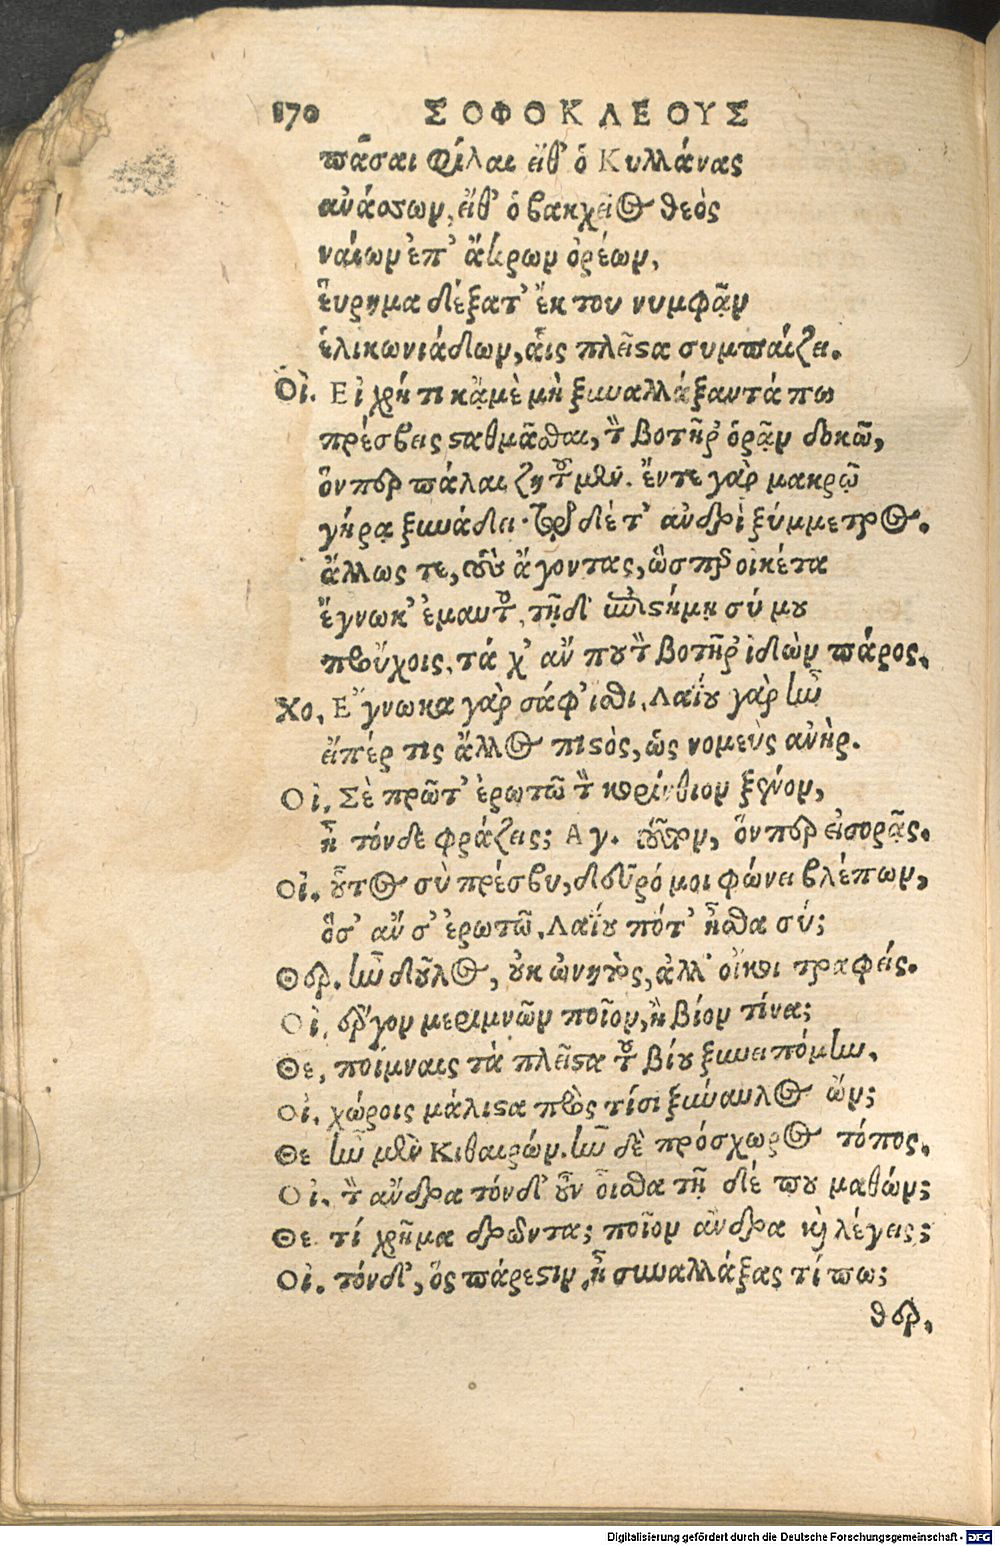 170 ΣΟΦΟΚΛΕΟΥΣ
πᾶσαι φίλαι εἴθ' ὁ Κυλλάνας
ἀνάσσων, εἴθ' ὁ βακχεῖος θεὸς
ναίων ἐπ' ἄκρων ὀρέων,
εὕρημα δέξατ' ἔκ του νυμφᾶν
ἑλικωνιάδων, αἷς πλεῖστα συμπαίζει.
Οἰ. Εἰ χρή τι κᾀμὲ μὴ ξυναλλάξαντά πω
πρέσβεις σταθμᾶσθαι, τὸν βοτῆρ' ὁρᾷν δοκῶ,
ὅνπερ πάλαι ζητοῦμεν. ἔν τε γὰρ μακρῷ
γήρᾳ ξυνάδει· τῷδέ τ' ἀνδρὶ ξύμμετρος.
ἄλλως τε, τοὺς ἄγοντας, ὥσπερ οἰκέτα
ἔγνωκ' ἐμαυτοῦ, τῇδ' ἐπιστήμῃ σύ μου
προὔχοις, τά χ' ἄν που τὸν βοτῆρ' ἰδὼν πάρος.
Χο. Ἔγνωκα γὰρ σάφ' ἴσθι, Λαΐου γὰρ ἦν
εἴπέρ τις ἄλλος πιστὸς, ὡς νομεὺς ἀνὴρ.
Οἰ. Σὲ πρῶτ' ἐρωτῶ τὸν κορίνθιον ξένον,
ἢ τόνδε φράζεις; Αγ. τοῦτον, ὅνπερ εἰσορᾷς.
Οἰ. οὗτος σὺ πρέσβυ, δεῦρό μοι φώνει βλέπων,
ὅσ' ἄν σ' ἐρωτῶ. Λαΐου πότ' ἦσθα σύ;
Θερ. ἦν δοῦλος, οὐκ ὠνητὸς, ἀλλ' οἴκοι τραφείς.
Οἰ. ἔργον μεριμνῶν ποῖον, ἢ βίον τίνα;
Θε. ποίμναις τὰ πλεῖστα τοῦ βίου ξυνειπόμην.
Οἰ. χώροις μάλιστα πρὸς τίσι ξύναυλος ὤν;
Θε ἦν μὲν Κιθαιρών. ἦν δὲ πρόσχωρος τόπος.
Οἰ. τὸν ἄνδρα τόνδ' οὖν οἶσθα τῇ δέ που μαθών;
Θε τί χρῆμα δρῶντα; ποῖον ἄνδρα καὶ λέγεις;
Οἰ. τόνδ', ὃς πάρεστιν, ἢ συναλλάξας τί πω;
θερ.
Digitalisierung gefördert durch die Deutsche Forschungsgemeinschaft - DFG